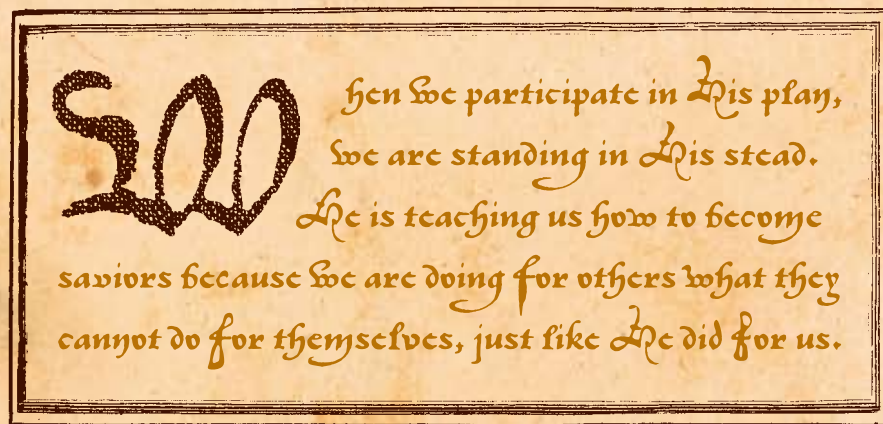 When we participate in His plan,
we are standing in His stead.
He is teaching us how to become
saviors because we are doing for others what they
cannot do for themselves, just like He did for us.